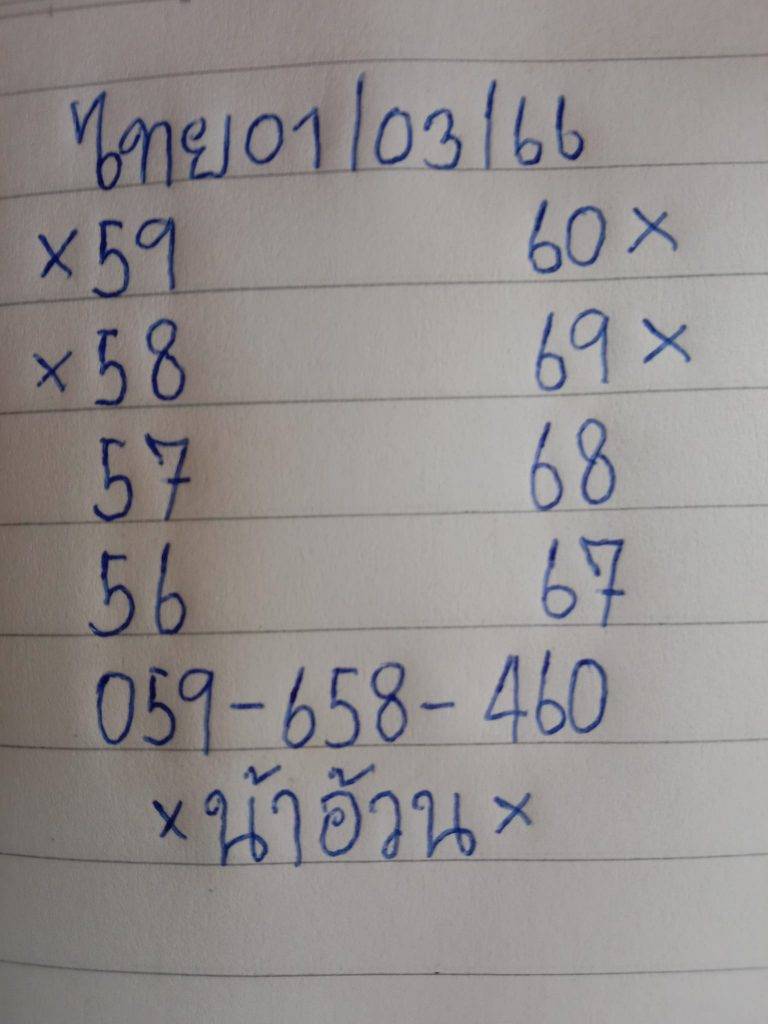 ไทย 01/03/66
×59 60×
×58 69×
57 68
56 67
059-658-460
×น้าอ้วน×